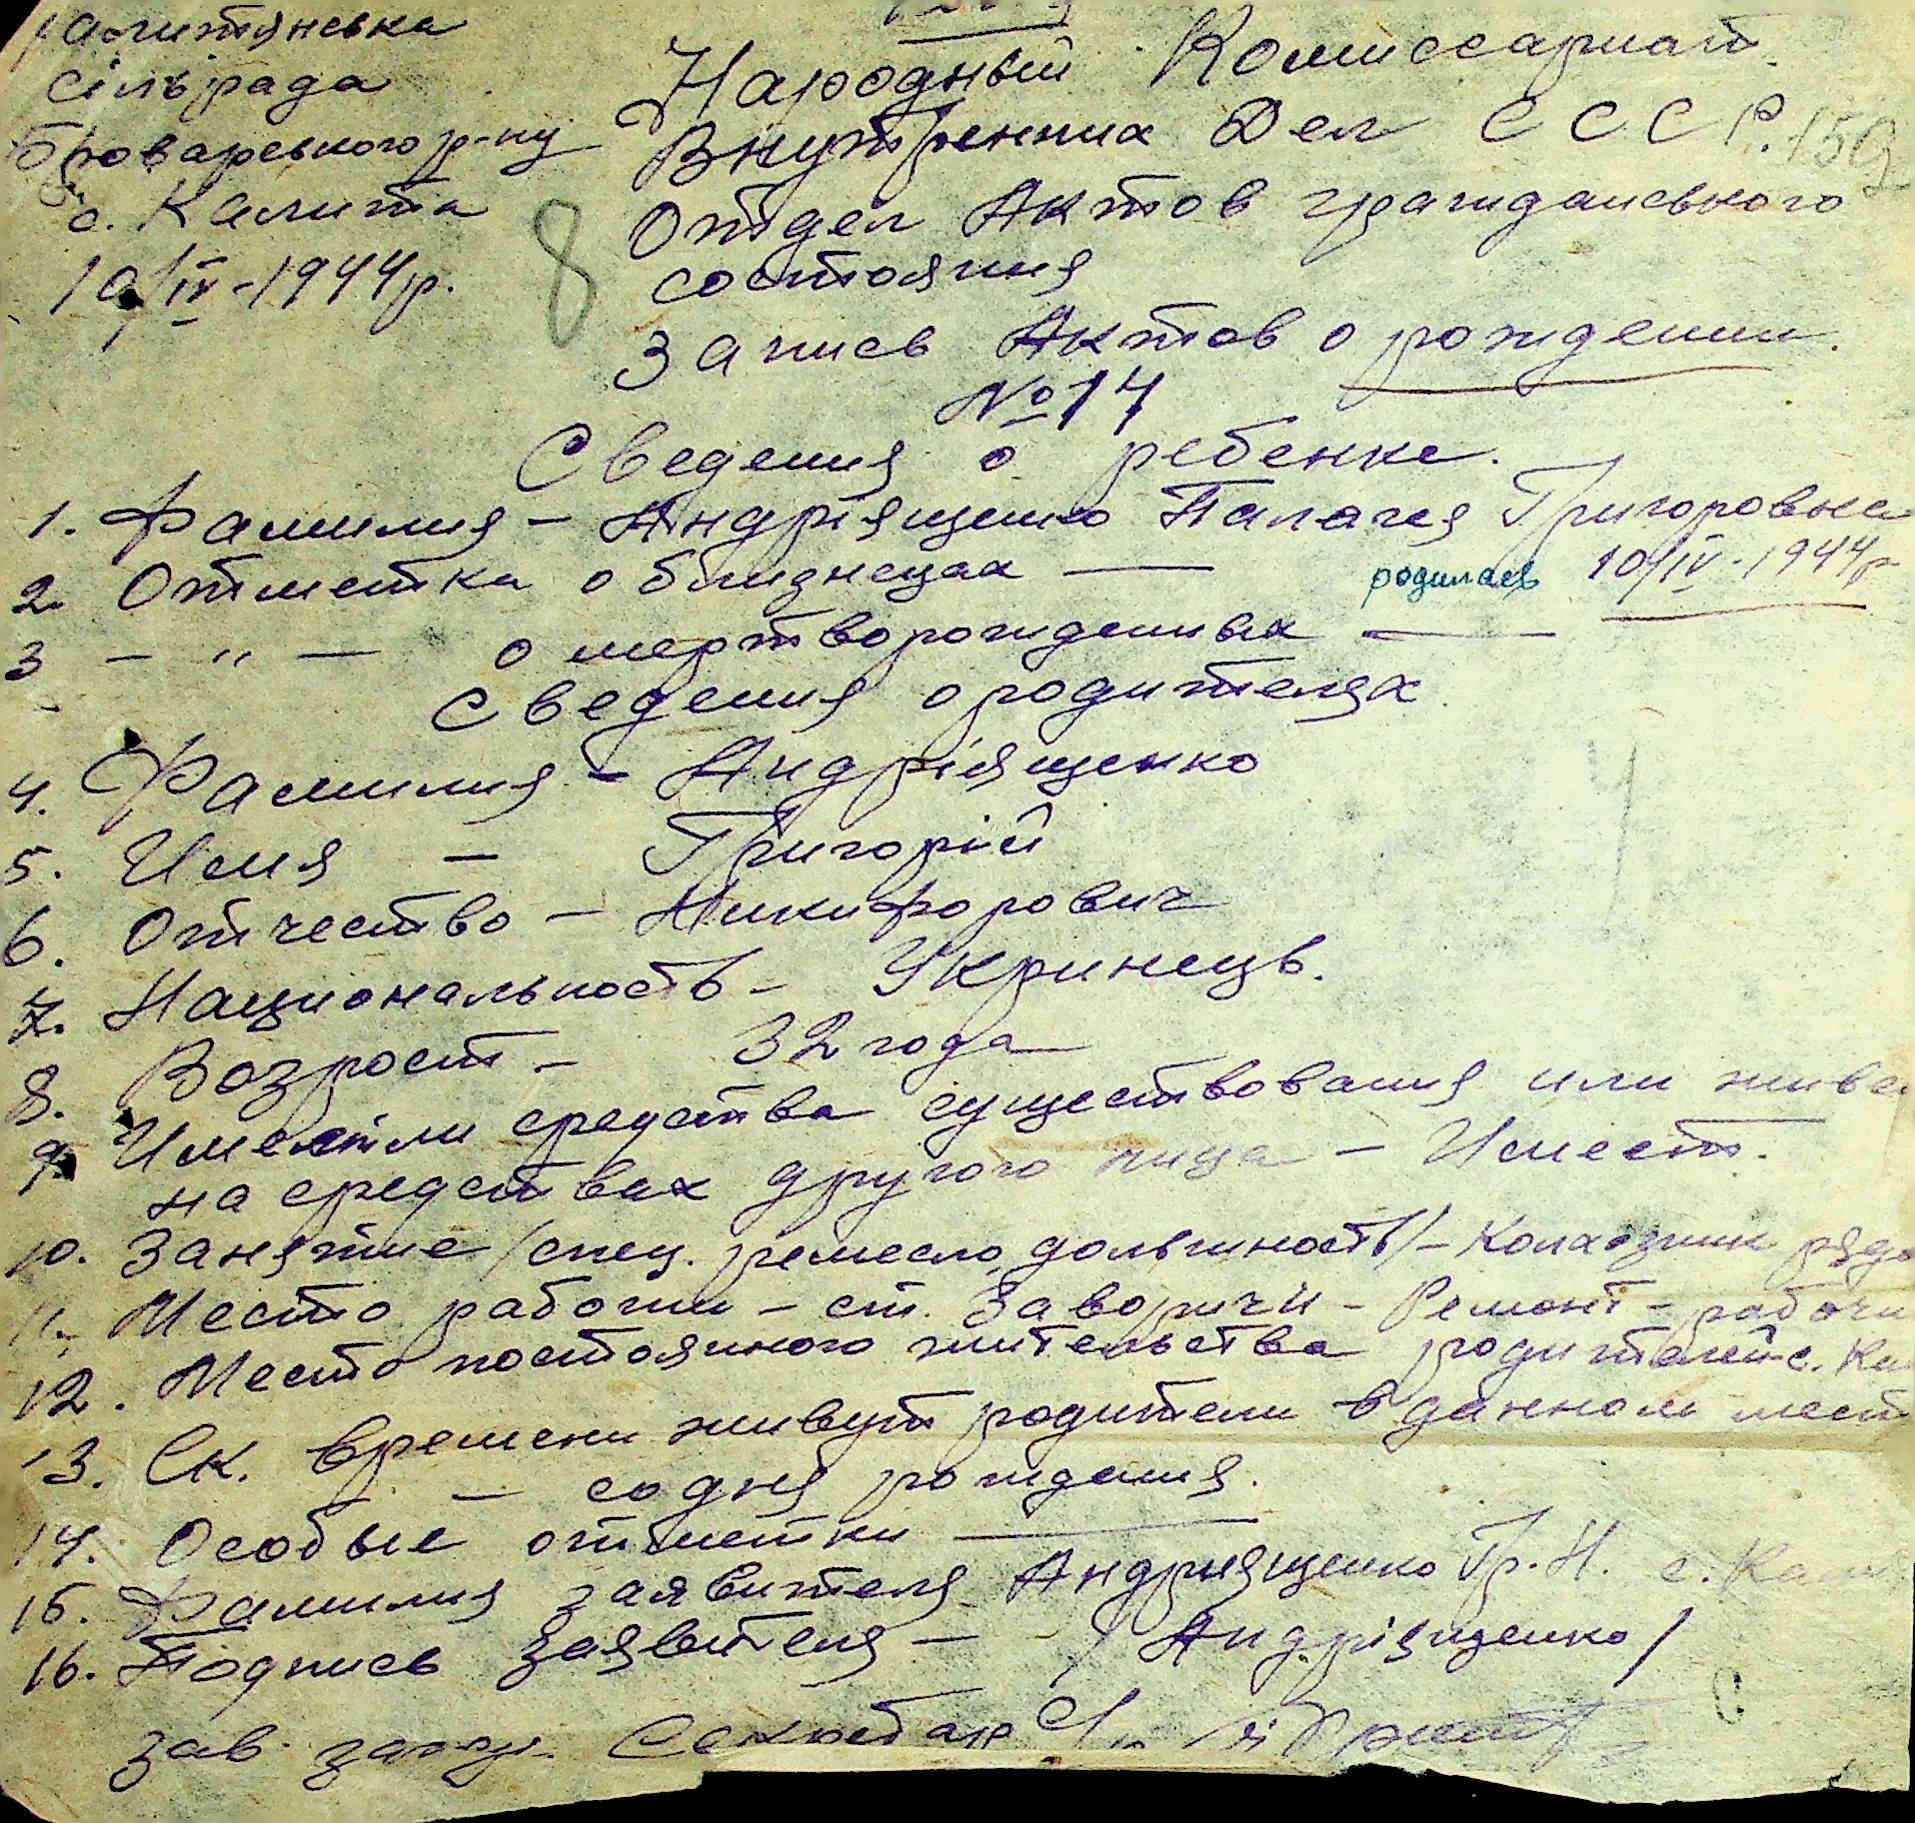 Калитянська
сільрада
Броварського р-ну
с. Калита
10/IV-1944р.
8
Народный Комиссариат
Внутренних Дел СССР.
Отдел Актов гражданського
состояния
Запись Актов о рождении.
№ 14
Сведения о ребенке.
1. Фамилия - Андріященко Палагея Григоровна
2. Отметка о близнецах — родилась 10/IV-1944р
3 — " — о мертворожденных —
Сведения о родителях
4. Фамилия - Андріященко
5. Имя - Григорій
6. Отчество - Никифорович
7. Национальность - Укринець.
8. Возрост - 32 года
9. Имеет ли средства существования или живе
на средствах другого лица - Имеет.
10. Занятие /спец. ремесло, должность/ - Колхозник рядо
11. Место работи - ст. Заворичи - Ремонт - рабочи
12. Место постоянного жительства родителей с. Ка
13. Ск. времени живут родители в данном мест
— со дня рождения.
14. Особые отметки —
15. Фамилия заявителя Андриященко Гр. Н. с. Кали
16. Подпись Заявителя - /Андріященко/
Зав. загсу. Секретар